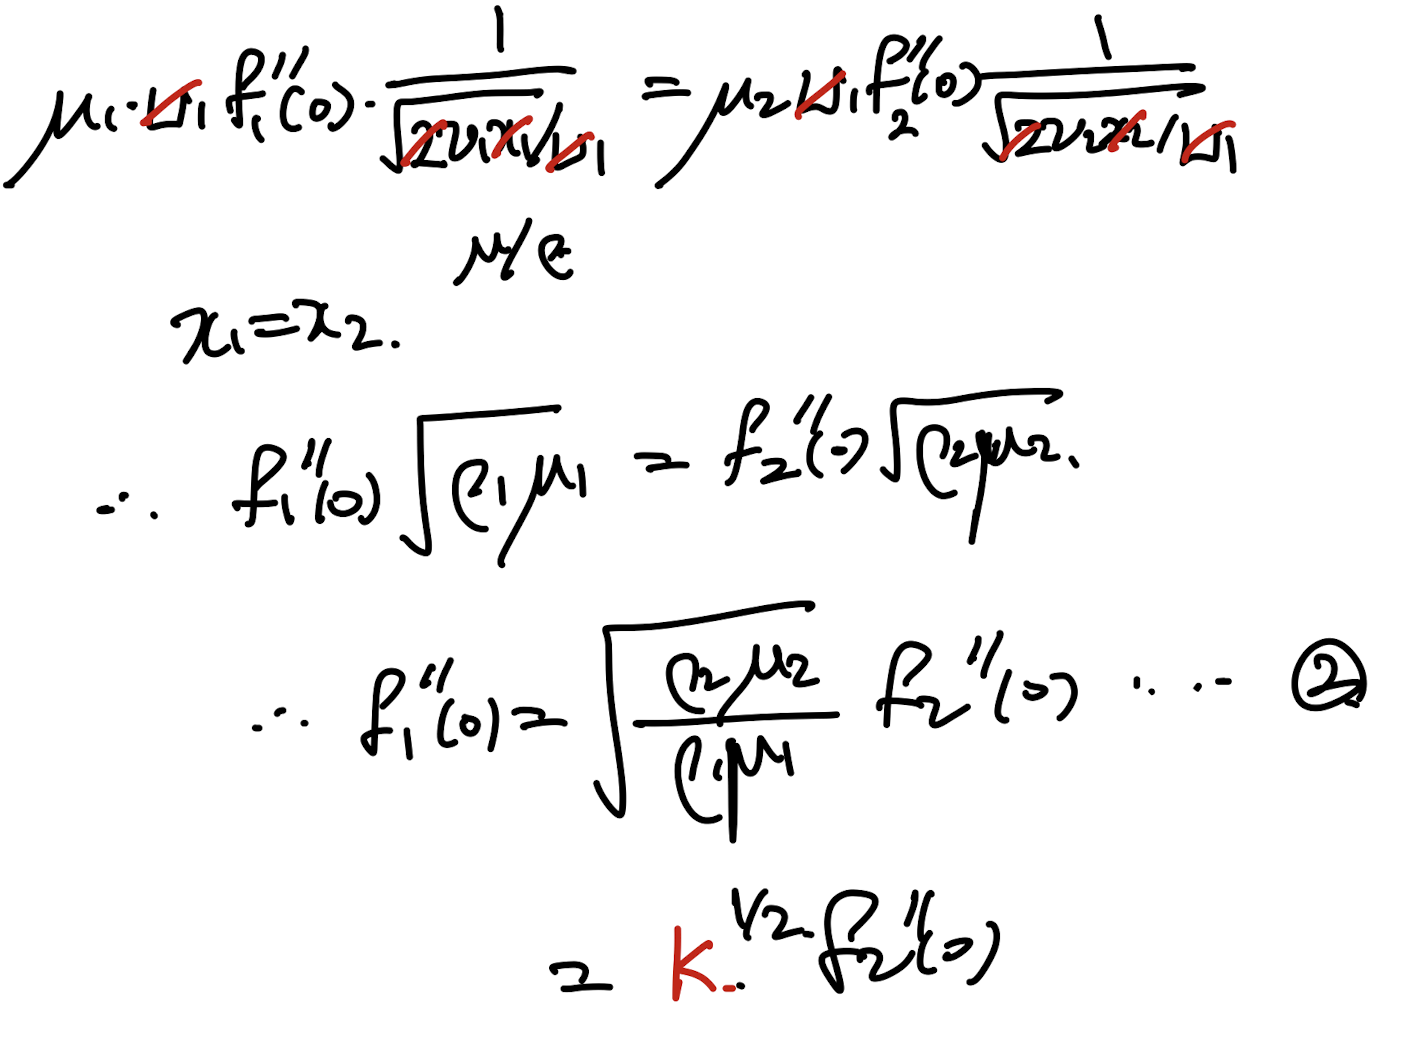 μ₁·U₁ f₁''(0)· 1/√(2ν₁x₁/U₁) = μ₂ U₁ f₂''(0) 1/√(2ν₂x₂/U₁)
μ/ρ
x₁=x₂.
∴ f₁''(0) √(ρ₁μ₁) = f₂''(0) √(ρ₂μ₂).
∴ f₁''(0) = √(ρ₂μ₂/ρ₁μ₁) f₂''(0) ... ... ②
= K^1/2 · f₂''(0)